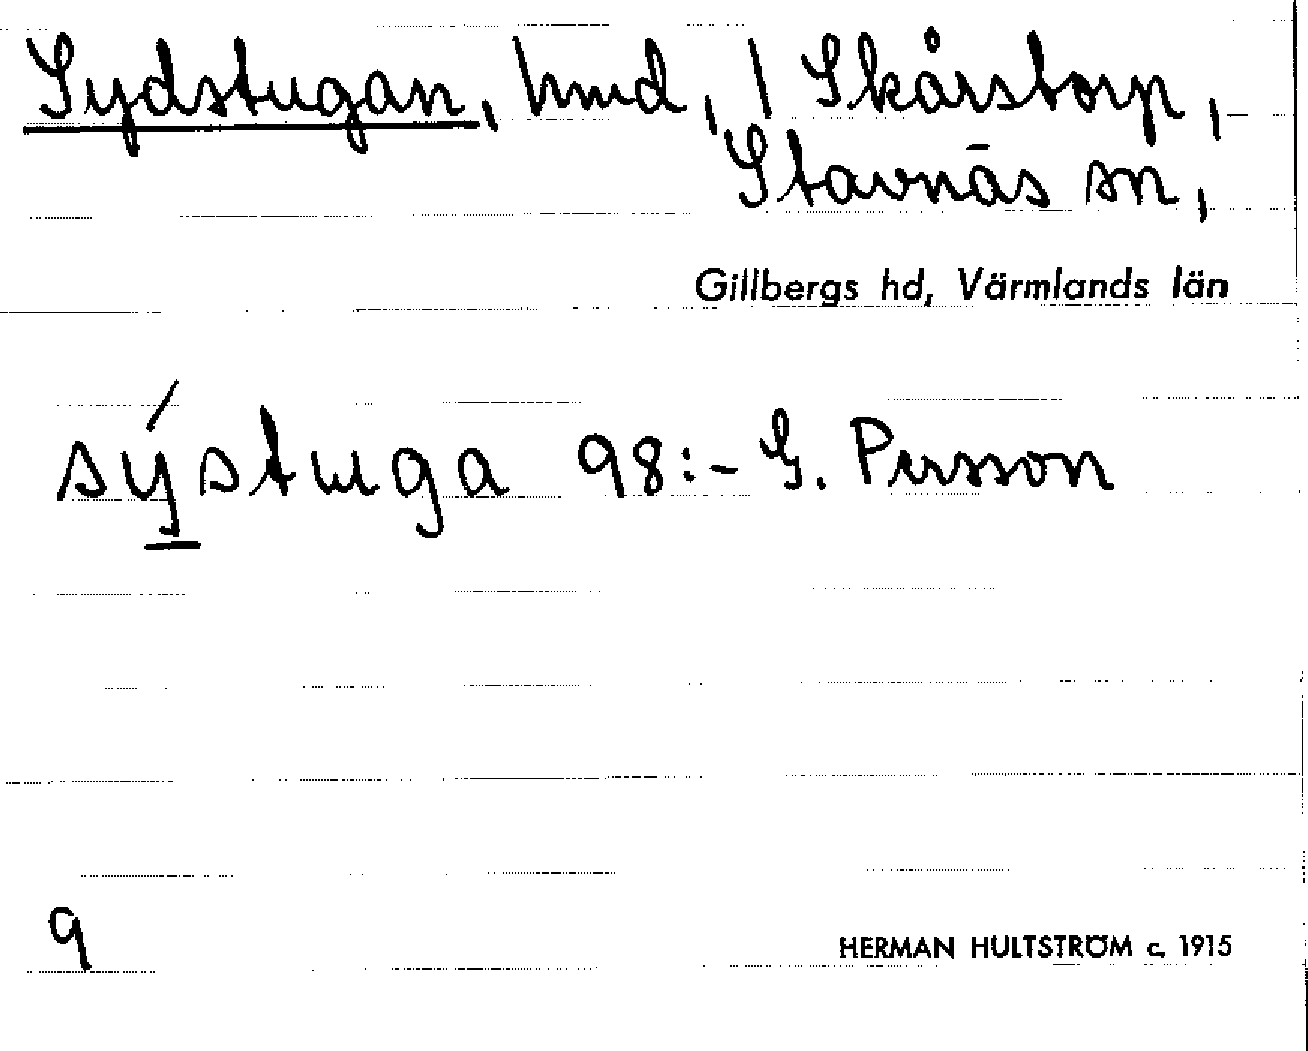 Sydstugan, hmd, / Skårstorp,
Stavnäs sn,
Gillbergs hd, Värmlands län
sýstuga 98:- G. Persson
9
HERMAN HULTSTRÖM c. 1915